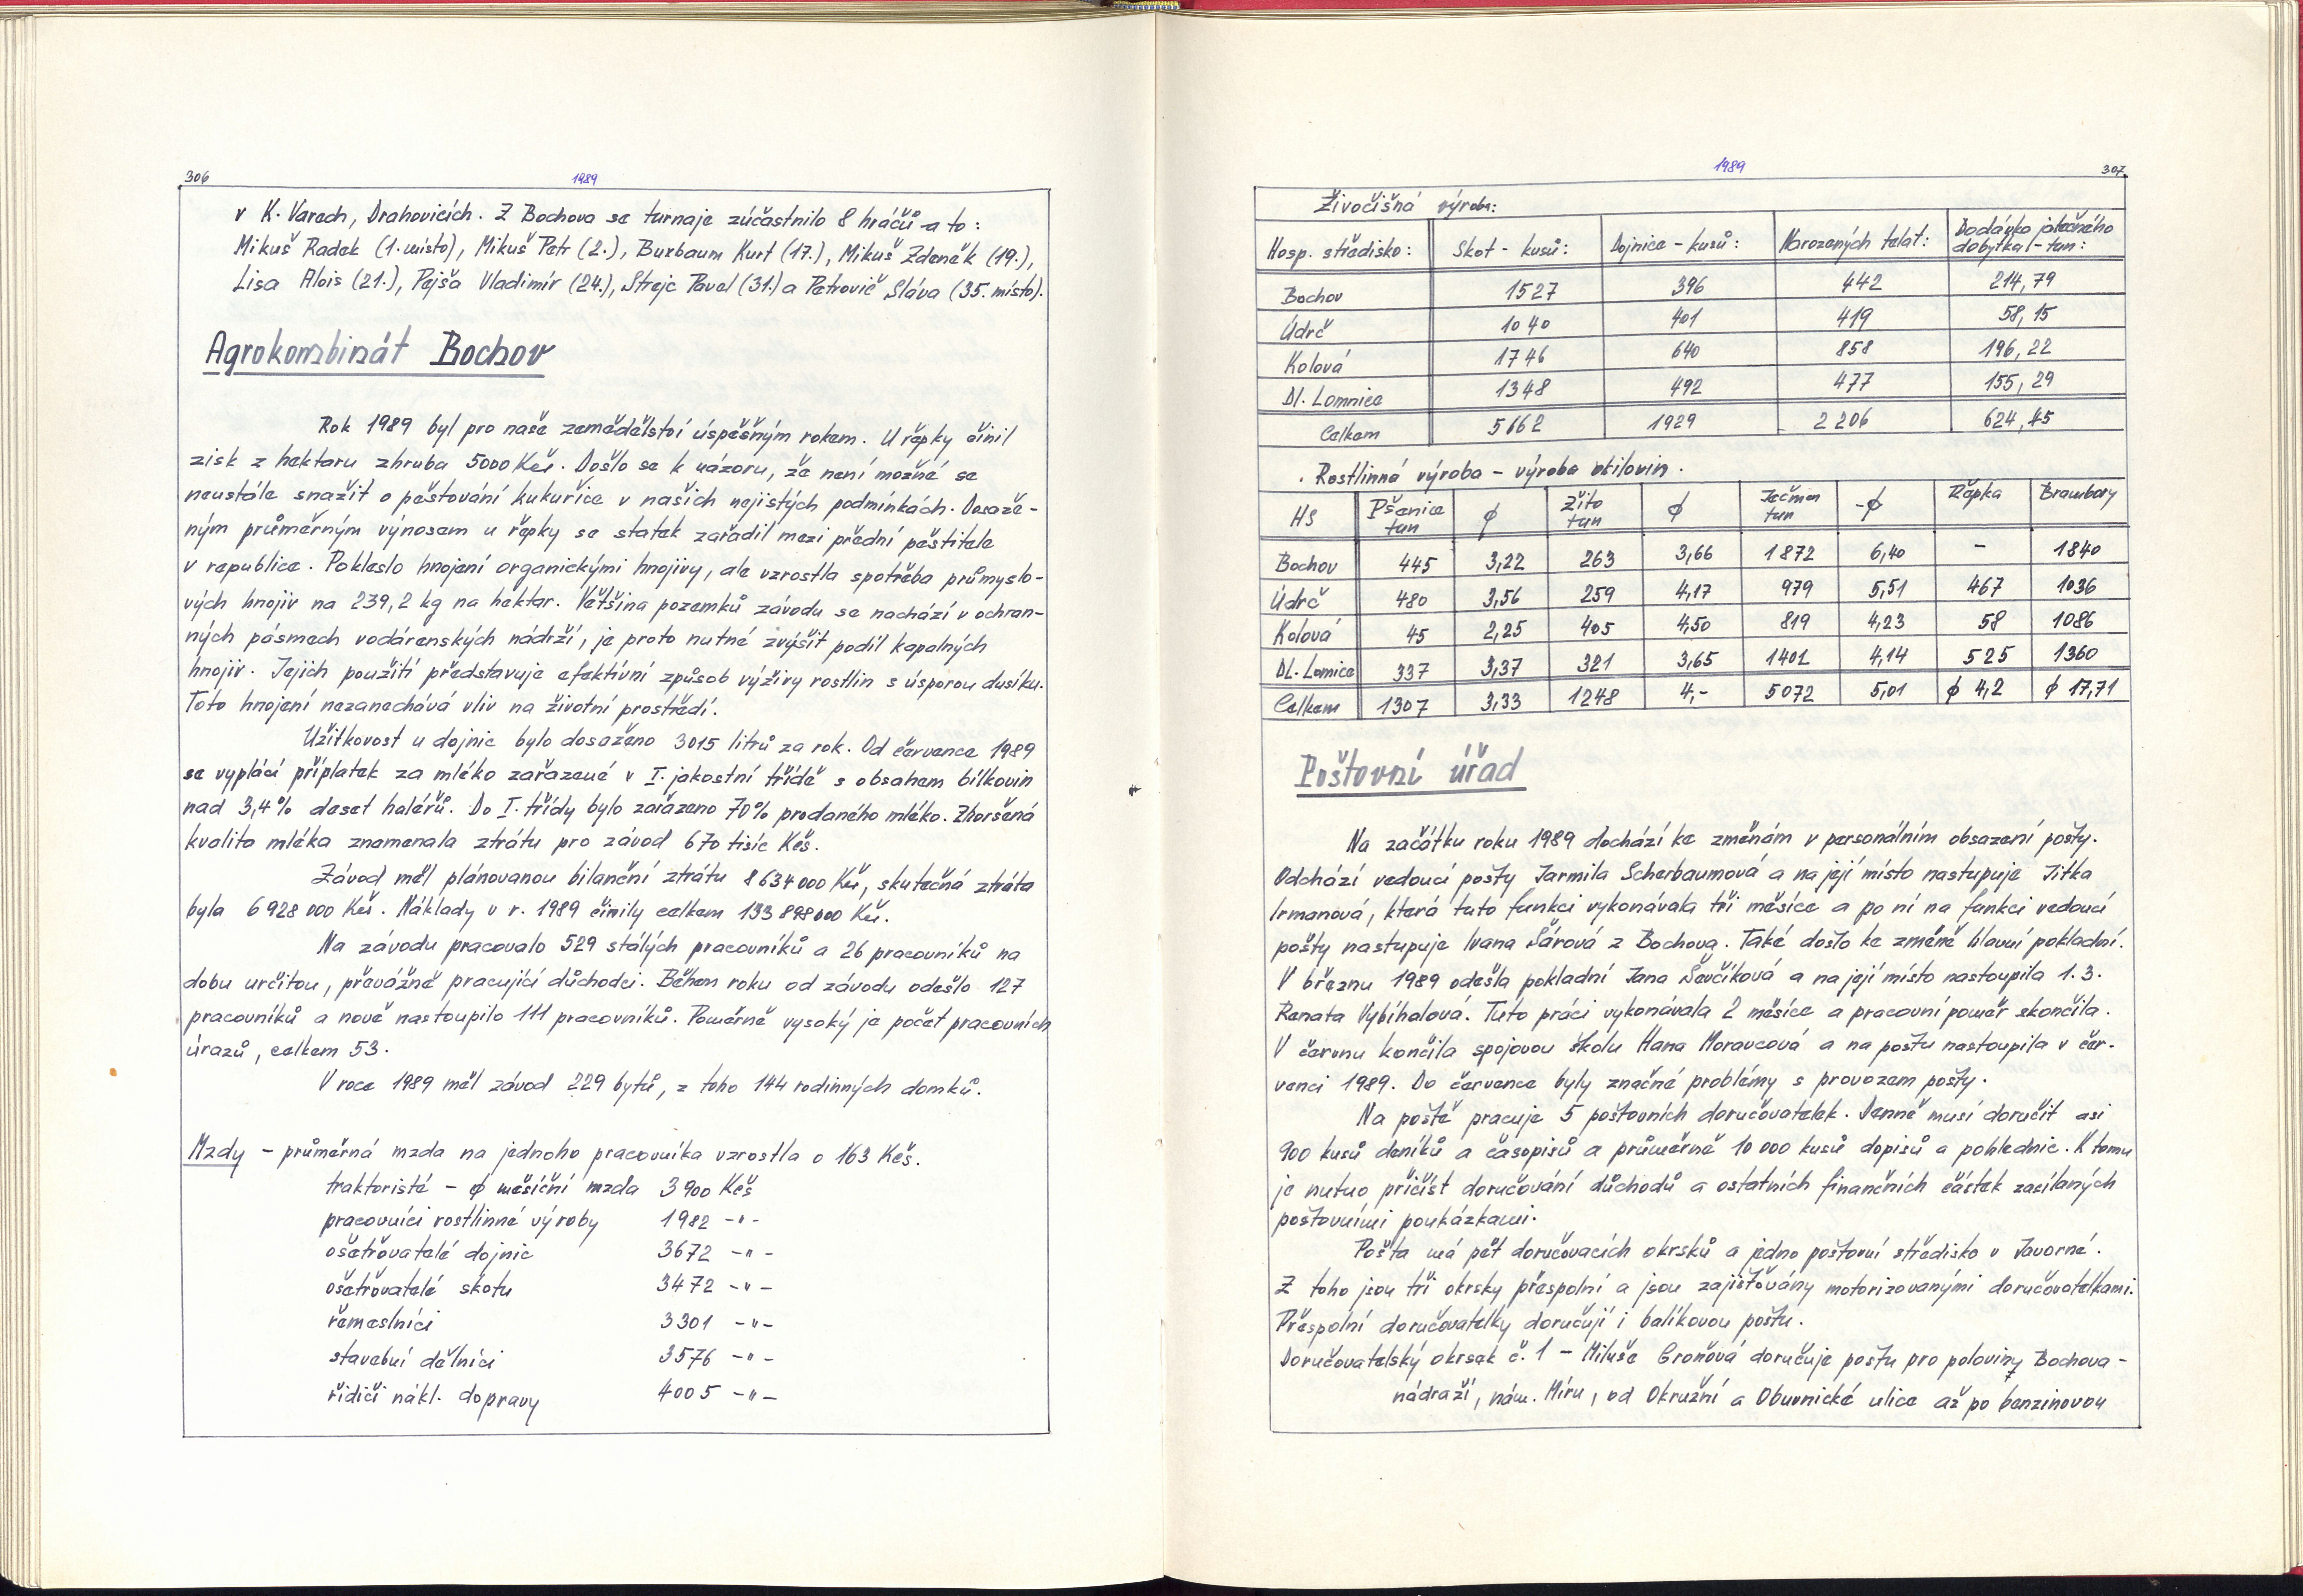 306
1989
v K. Varech, Drahovicích. Z Bochova se turnaje zúčastnilo 8 hráčů a to:
Mikuš Radek (1. místo), Mikuš Petr (2.), Buxbaum Kurt (17.), Mikuš Zdeněk (19.),
Lisa Alois (21.), Pejša Vladimír (24.), Strejc Pavel (31.) a Petrovič Sláva (35. místo).
Agrokombinát Bochov
Rok 1989 byl pro naše zemědělství úspěšným rokem. U řepky činil
zisk z hektaru zhruba 5000 Kčs. Došlo se k názoru, že není možné se
neustále snažit o pěstování kukuřice v našich nejistých podmínkách. Dosaže-
ným průměrným výnosem u řepky se statek zařadil mezi přední pěstitele
v republice. Pokleslo hnojení organickými hnojivy, ale vzrostla spotřeba průmyslo-
vých hnojiv na 239,2 kg na hektar. Většina pozemků závodu se nachází v ochran-
ných pásmech vodárenských nádrží, je proto nutné zvýšit podíl kapalných
hnojiv. Jejich použití představuje efektivní způsob výživy rostlin s úsporou dusíku.
Toto hnojení nezanechává vliv na životní prostředí.
Užitkovost u dojnic bylo dosaženo 3015 litrů za rok. Od července 1989
se vyplácí příplatek za mléko zařazené v I. jakostní třídě s obsahem bílkovin
nad 3,4% deset haléřů. Do I. třídy bylo zařazeno 70% prodaného mléko. Zhoršená
kvalita mléka znamenala ztrátu pro závod 670 tisíc Kčs.
Závod měl plánovanou bilanční ztrátu 8 634 000 Kčs, skutečná ztráta
byla 6 928 000 Kčs. Náklady v r. 1989 činily celkem 133 898 000 Kčs.
Na závodu pracovalo 529 stálých pracovníků a 26 pracovníků na
dobu určitou, převážně pracující důchodci. Během roku od závodu odešlo 127
pracovníků a nově nastoupilo 111 pracovníků. Poměrně vysoký je počet pracovních
úrazů, celkem 53.
V roce 1989 měl závod 229 bytů, z toho 144 rodinných domků.
Mzdy - průměrná mzda na jednoho pracovníka vzrostla o 163 Kčs.
traktoristé - ϕ měsíční mzda 3 900 Kčs
pracovníci rostlinné výroby 1982 -"-
ošetřovatelé dojnic 3672 -"-
ošetřovatelé skotu 3472 -"-
řemeslníci 3301 -"-
stavební dělníci 3576 -"-
řidiči nákl. dopravy 4005 -"-
1989
307
Živočišná výroba:
Hosp. středisko: Skot - kusů: Dojnice - kusů: Narozených telat: Dodávka jatečného dobytka - tun:
Bochov 1527 396 442 214,79
Údrč 1040 401 419 58,15
Kolová 1746 640 858 196,22
Dl. Lomnice 1348 492 477 155,29
Celkem 5662 1929 2 206 624,45
Rostlinná výroba - výroba obilovin.
HS Pšenice tun ϕ Žito tun ϕ Ječmen tun -ϕ Řepka Brambory
Bochov 445 3,22 263 3,66 1872 6,40 - 1840
Údrč 480 3,56 259 4,17 979 5,51 467 1036
Kolová 45 2,25 405 4,50 819 4,23 58 1086
Dl. Lomice 337 3,37 321 3,65 1401 4,14 525 1360
Celkem 1307 3,33 1248 4,- 5072 5,01 ϕ 4,2 ϕ 17,71
Poštovní úřad
Na začátku roku 1989 dochází ke změnám v personálním obsazení pošty.
Odchází vedoucí pošty Jarmila Scherbaumová a na její místo nastupuje Jitka
Irmanová, která tuto funkci vykonávala tři měsíce a po ní na funkci vedoucí
pošty nastupuje Ivana Šárová z Bochova. Také došlo ke změně hlavní pokladní.
V březnu 1989 odešla pokladní Jana Ševčíková a na její místo nastoupila 1.3.
Renata Vybíhalová. Tuto práci vykonávala 2 měsíce a pracovní poměr skončila.
V červnu končila spojovou školu Hana Moravcová a na poštu nastoupila v čer-
venci 1989. Do července byly značné problémy s provozem pošty.
Na poště pracuje 5 poštovních doručovatelek. Denně musí doručit asi
900 kusů deníků a časopisů a průměrně 10 000 kusů dopisů a pohlednic. K tomu
je nutno přičíst doručování důchodů a ostatních finančních částek zasílaných
poštovními poukázkami.
Pošta má pět doručovacích okrsků a jedno poštovní středisko v Javorné.
Z toho jsou tři okrsky přespolní a jsou zajišťovány motorizovanými doručovatelkami.
Přespolní doručovatelky doručují i balíkovou poštu.
Doručovatelský okrsek č. 1 - Miluše Groňová doručuje poštu pro poloviny Bochova -
nádraží, nám. Míru, od Okružní a Obuvnické ulice až po benzinovou